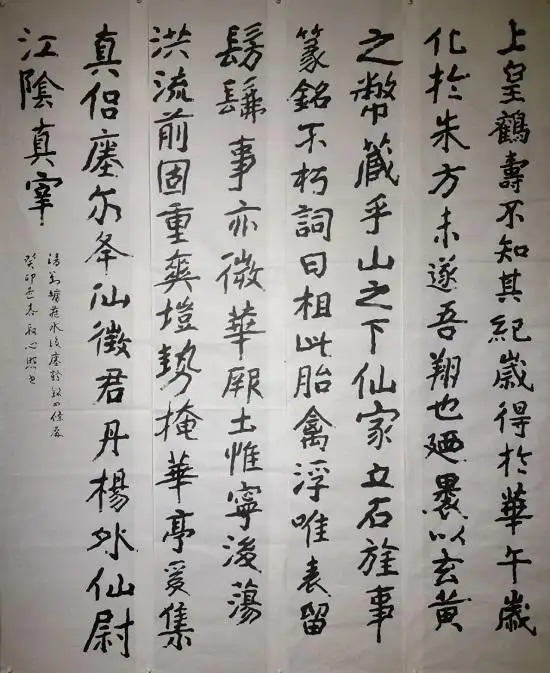 上皇鶴壽不知其紀歲得於華午歲
化於朱方未遂吾翔也廼褁以玄黃
之幣藏乎山之下仙家立石旌事
篆銘不朽詞曰相此胎禽浮唯表留
髣髴事亦微華厥土惟寧後蕩
洪流前固重爽塏勢掩華亭爰集
真侶瘞尔夅仙徵君丹楊外仙尉
江陰真宰
水後瘞鶴銘四條屏
癸卯孟春